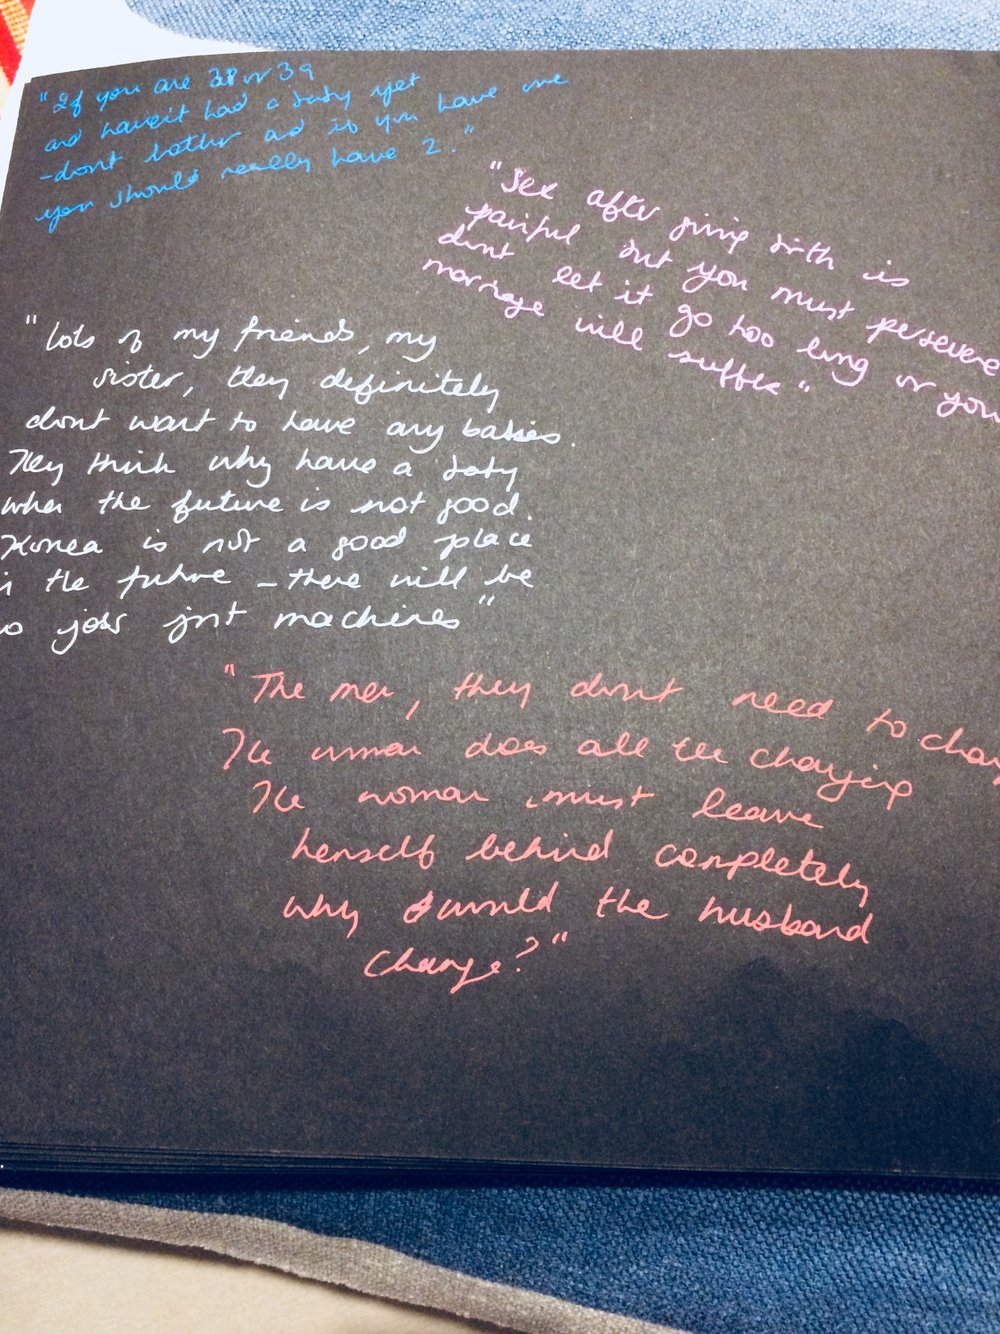 "If you are 38 or 39
and havent had a baby yet
- dont bother and if you have one
you should really have 2."
"Sex after giving birth is
painful but you must persevere
dont let it go too long or your
marriage will suffer"
"Lots of my friends, my
sister, they definitely
dont want to have any babies.
They think why have a baby
when the future is not good.
Korea is not a good place
in the future - there will be
no jobs just machines"
"The men, they dont need to chang
The woman does all the changing
The woman must leave
herself behind completely
why should the husband
change?"